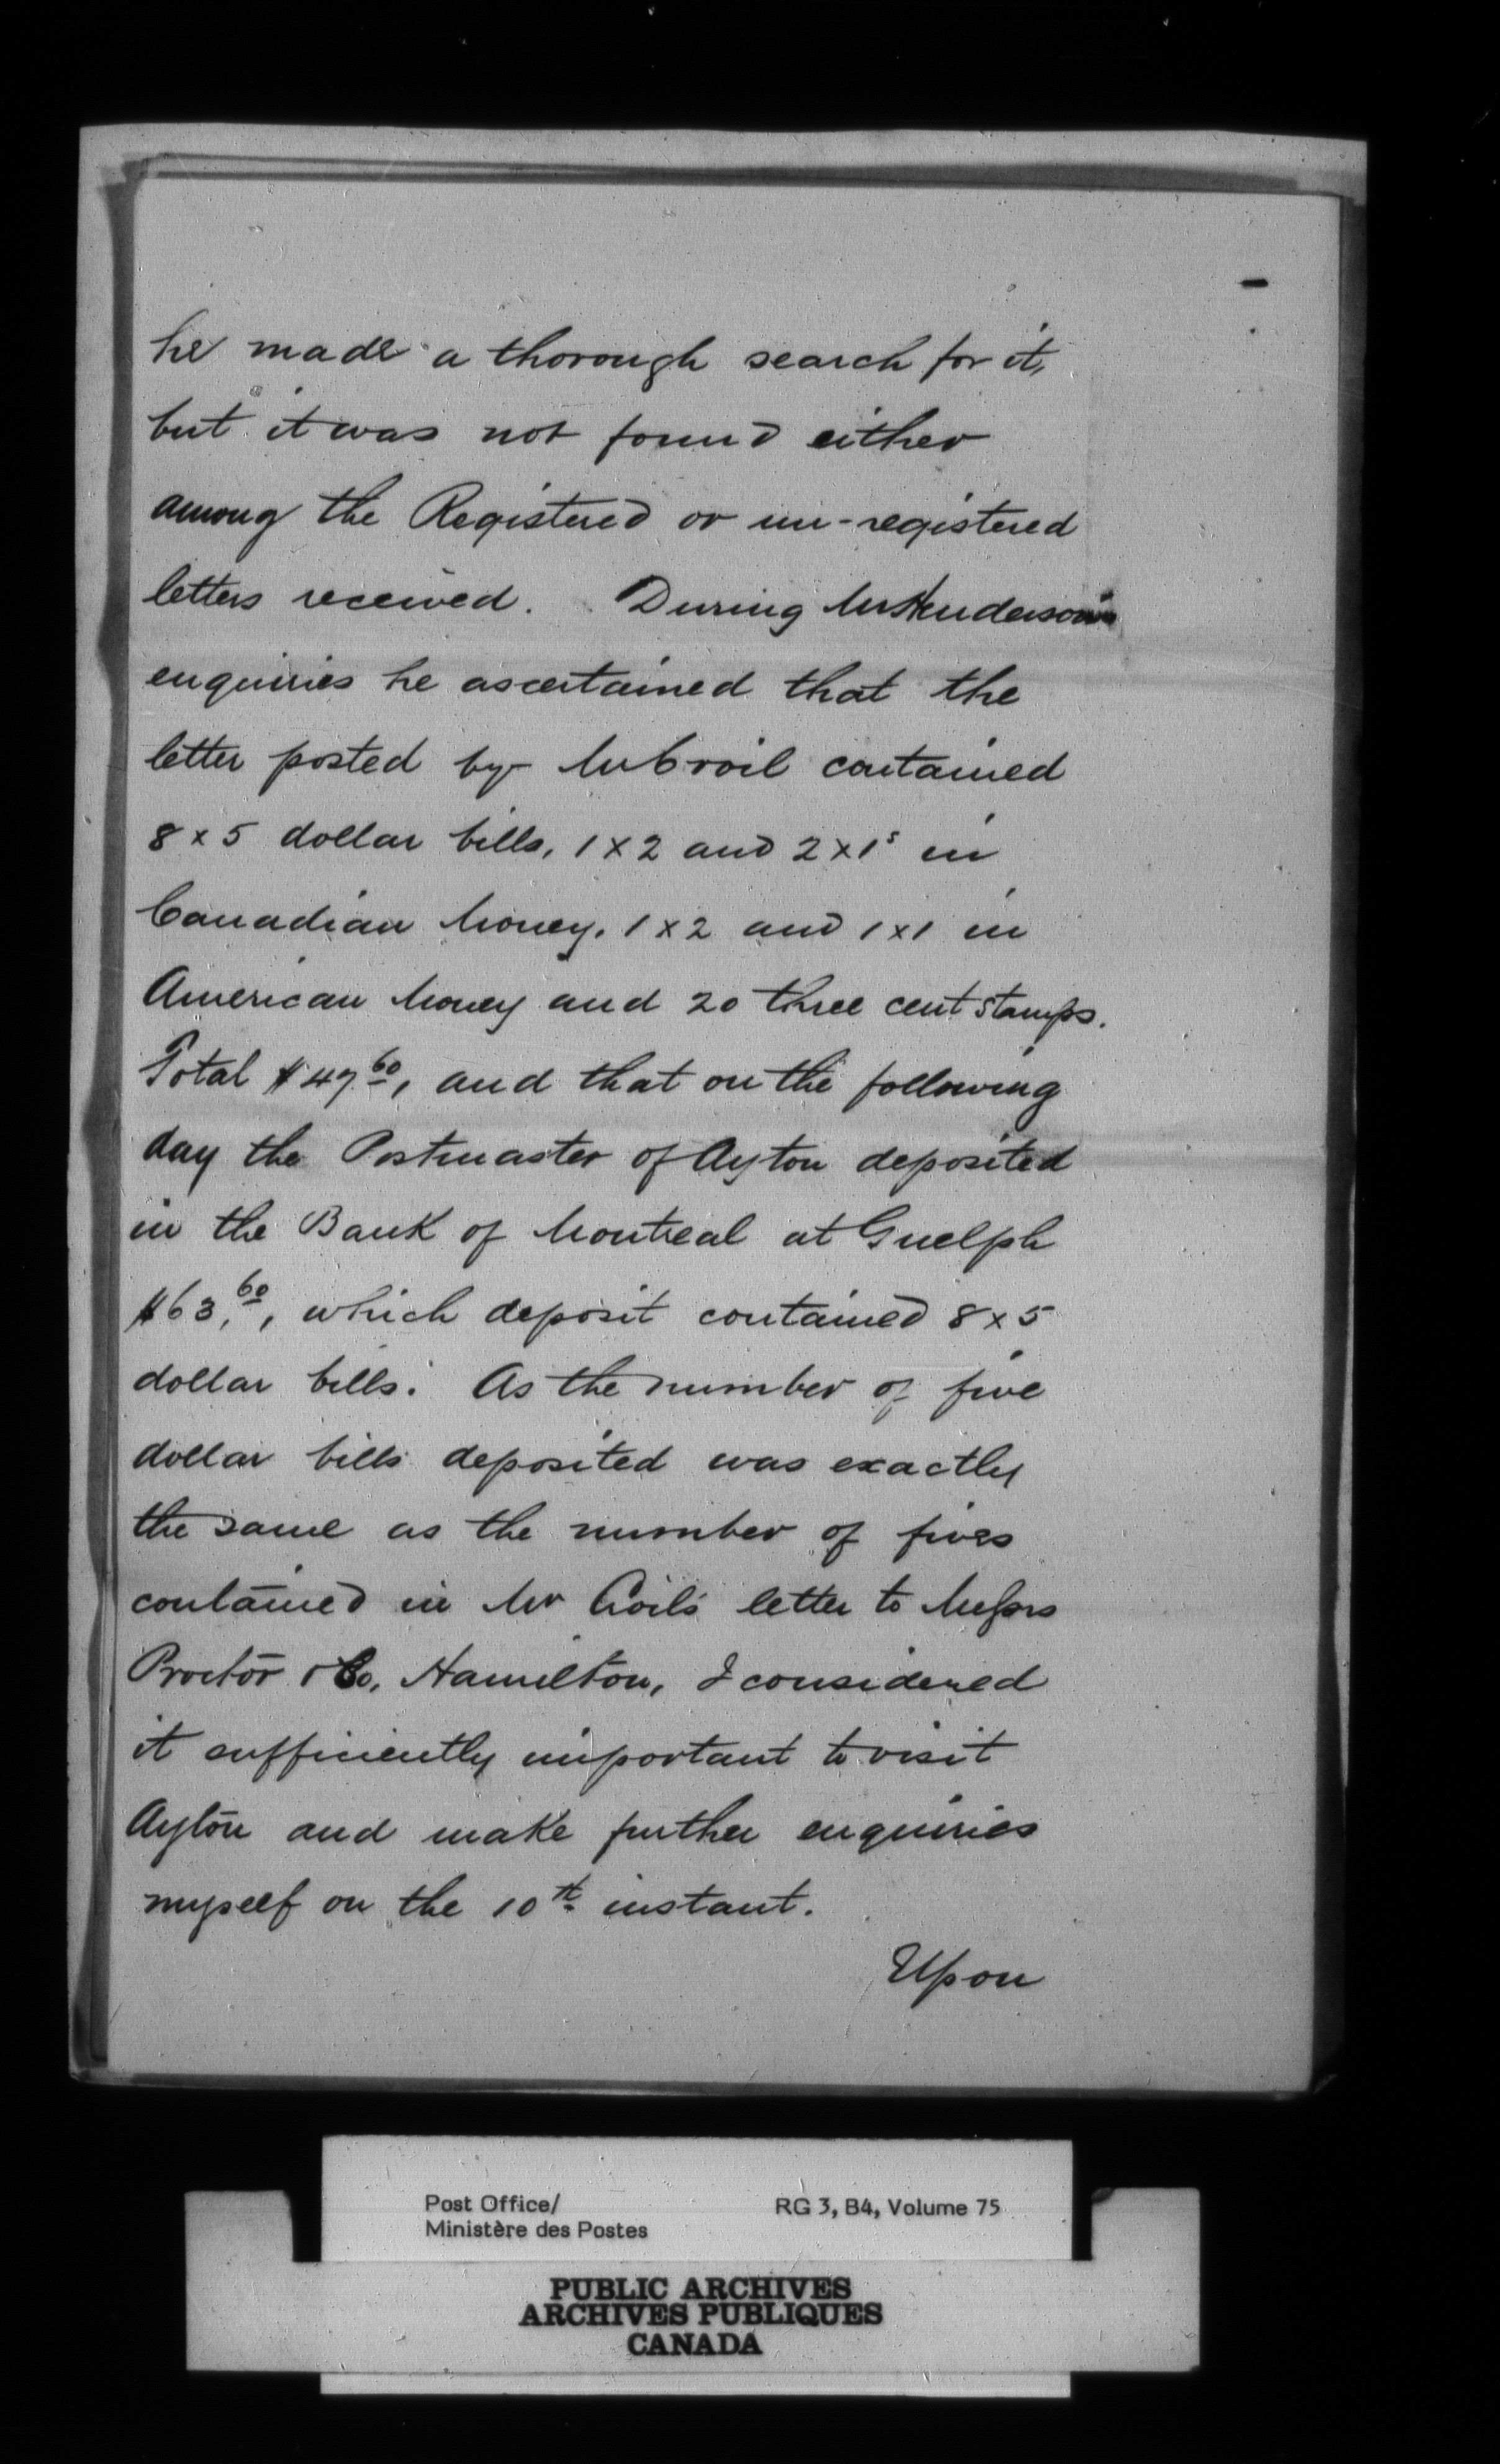 he made a thorough search for it,
but it was not found either
among the Registered or un-registered
letters received. During Mr Henderson's
enquiries he ascertained that the
letter posted by Mr Croil contained
8 x 5 dollar bills, 1 x 2 and 2 x 1s in
Canadian Money. 1 x 2 and 1 x 1 in
American Money and 20 three cent stamps.
Total $47.60, and that on the following
day the Postmaster of Ayton deposited
in the Bank of Montreal at Guelph
$63.60, which deposit contained 8 x 5
dollar bills. As the number of five
dollar bills deposited was exactly
the same as the number of fives
contained in Mr Croil's letter to Messrs
Proctor & Co, Hamilton, I considered
it sufficiently important to visit
Ayton and make further enquiries
myself on the 10th instant.
Upon
Post Office/ RG 3, B4, Volume 75
Ministère des Postes
PUBLIC ARCHIVES
ARCHIVES PUBLIQUES
CANADA